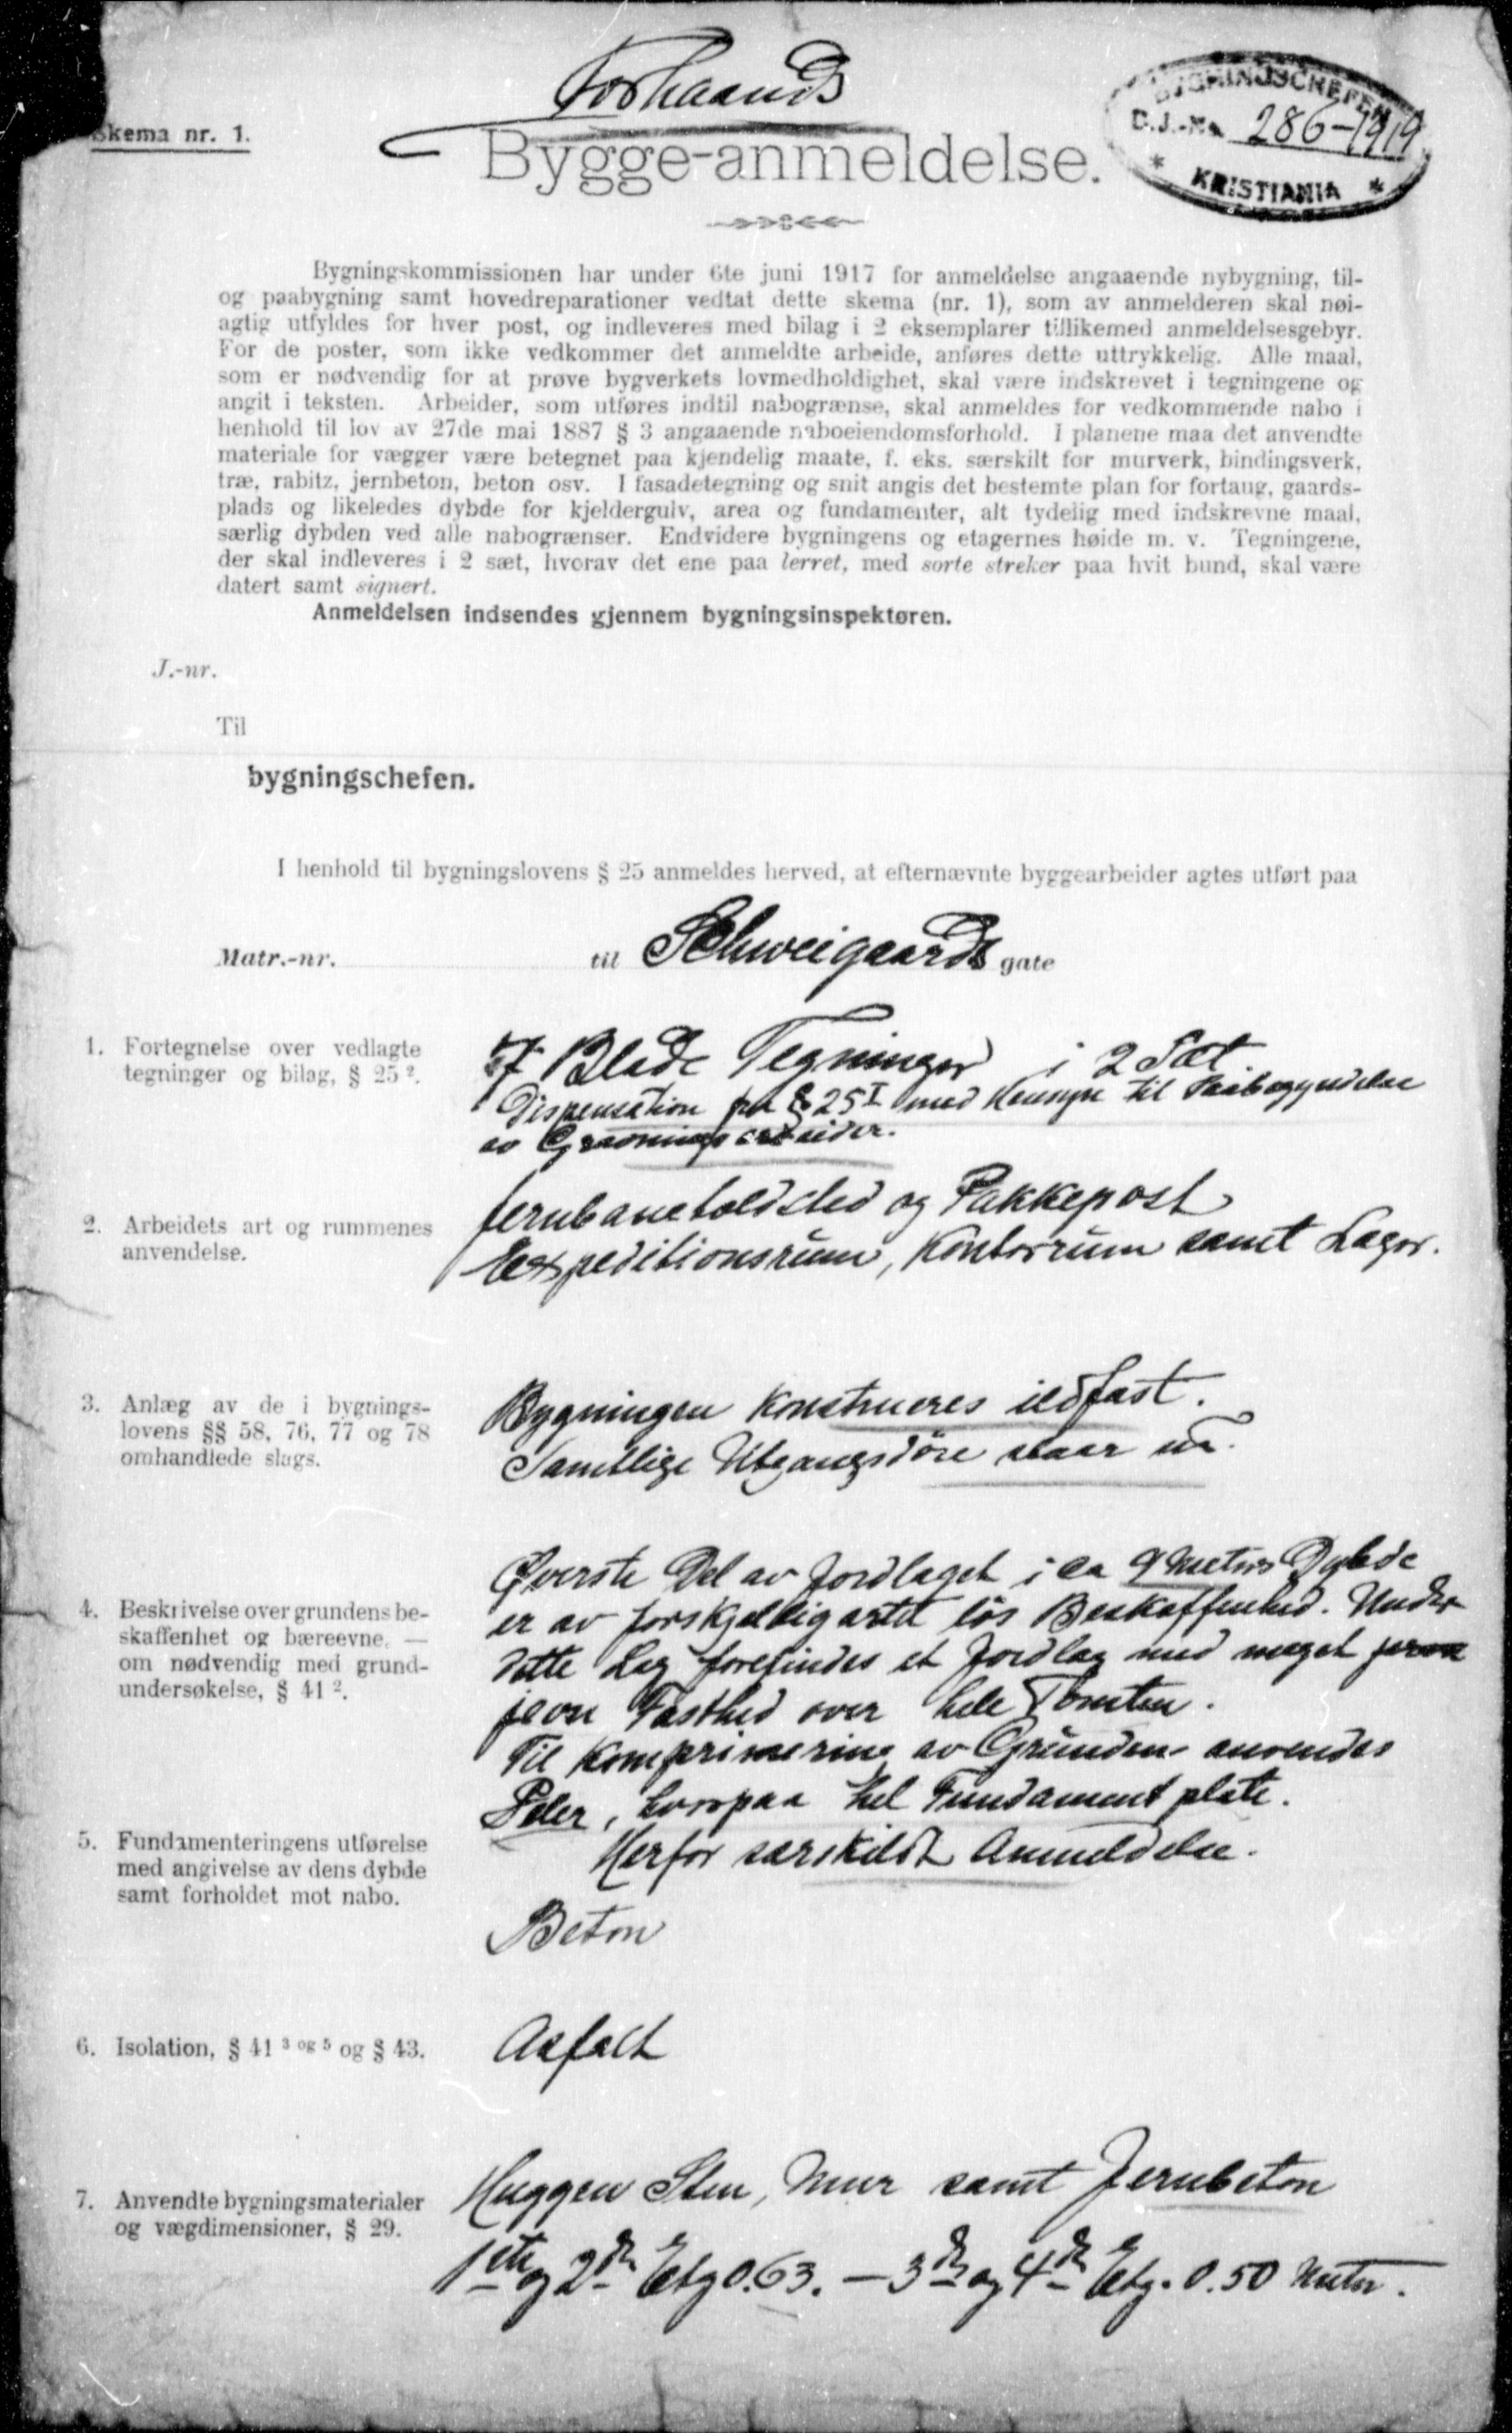 Forhaands
Skema nr. 1.
Bygge-anmeldelse.
BYGNINGSCHEFEN
D.J.-No. 286-1919
* KRISTIANIA *
Bygningskommissionen har under 6te juni 1917 for anmeldelse angaaende nybygning, til-
og paabygning samt hovedreparationer vedtat dette skema (nr. 1), som av anmelderen skal nøi-
agtig utfyldes for hver post, og indleveres med bilag i 2 eksemplarer tillikemed anmeldelsesgebyr.
For de poster, som ikke vedkommer det anmeldte arbeide, anføres dette uttrykkelig. Alle maal,
som er nødvendig for at prøve bygverkets lovmedholdighet, skal være indskrevet i tegningene og
angit i teksten. Arbeider, som utføres indtil nabogrænse, skal anmeldes for vedkommende nabo i
henhold til lov av 27de mai 1887 § 3 angaaende naboeiendomsforhold. I planene maa det anvendte
materiale for vægger være betegnet paa kjendelig maate, f. eks. særskilt for murverk, bindingsverk,
træ, rabitz, jernbeton, beton osv. I fasadetegning og snit angis det bestemte plan for fortaug, gaards-
plads og likeledes dybde for kjeldergulv, area og fundamenter, alt tydelig med indskrevne maal,
særlig dybden ved alle nabogrænser. Endvidere bygningens og etagernes høide m. v. Tegningene,
der skal indleveres i 2 sæt, hvorav det ene paa lerret, med sorte streker paa hvit bund, skal være
datert samt signert.
Anmeldelsen indsendes gjennem bygningsinspektøren.
J.-nr.
Til
bygningschefen.
I henhold til bygningslovens § 25 anmeldes herved, at efternævnte byggearbeider agtes utført paa
Matr.-nr. til Schweigaards gate
1. Fortegnelse over vedlagte
tegninger og bilag, § 25 2.
7 Blade Tegninger i 2 Sæt
Dispensation fra § 25 I med Hensyn til Paabegyndelse
av Gravningsarbeider.
2. Arbeidets art og rummenes
anvendelse.
Jernbanetoldsted og Pakkepost
Expeditionsrum, Kontorrum samt Lager.
3. Anlæg av de i bygnings-
lovens §§ 58, 76, 77 og 78
omhandlede slags.
Bygningen konstrueres ildfast.
Samtlige Utgangsdøre slaar ut.
4. Beskrivelse over grundens be-
skaffenhet og bæreevne, —
om nødvendig med grund-
undersøkelse, § 41 2.
Øverste Del av Jordlaget i ca 9 Meters Dybde
er av forskjelligartet løs Beskaffenhed. Under
dette Lag forefindes et Jordlag med meget
jevn Fasthed over hele Tomten.
Til Komprimering av Grunden anvendes
Peler, hvorpaa hel Fundamentplate.
Herfor særskildt Anmeldelse.
5. Fundamenteringens utførelse
med angivelse av dens dybde
samt forholdet mot nabo.
Beton
6. Isolation, § 41 3 og 5 og § 43.
Asfalt
7. Anvendte bygningsmaterialer
og vægdimensioner, § 29.
Huggen Sten, Mur samt Jernbeton
1ste og 2den Etg 0.63. — 3die og 4de Etg. 0.50 Meter.